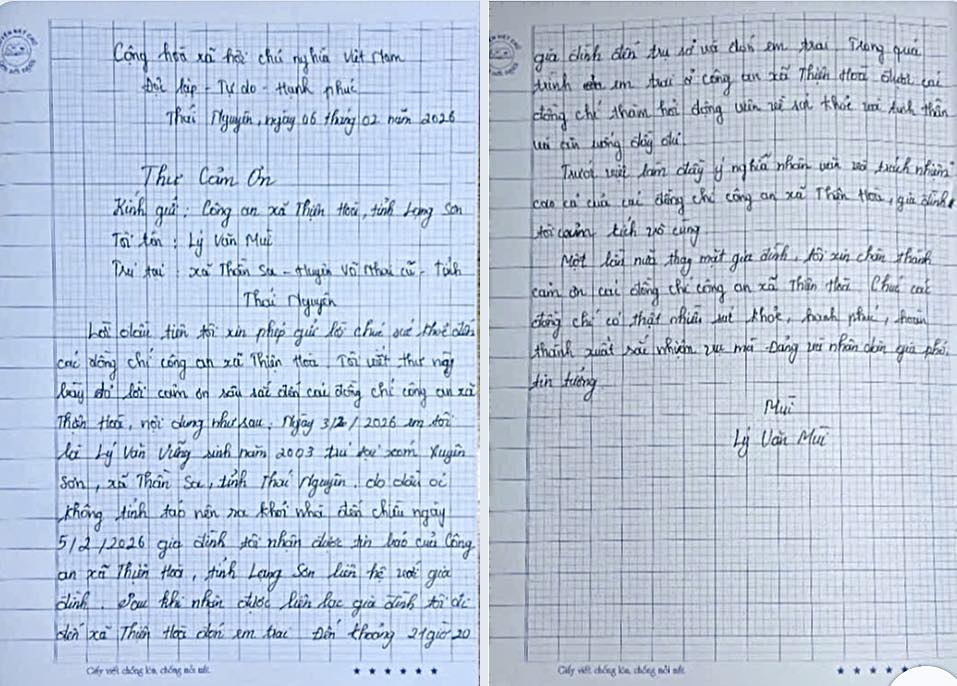 Cộng hoà xã hội chủ nghĩa Việt Nam
Độc lập - Tự do - Hạnh phúc
Thái Nguyên, ngày 06 tháng 02 năm 2026
Thư Cảm Ơn
Kính gửi: Công an xã Thiện Hoà, tỉnh Lạng Sơn
Tôi tên: Lý Văn Mùi
Trú tại: xã Thần Sa - Huyện Võ Nhai cũ - Tỉnh
Thái Nguyên
Lời đầu tiên tôi xin phép gửi lời chúc sức khoẻ đến
các đồng chí công an xã Thiện Hoà. Tôi viết thư này
bày tỏ lời cảm ơn sâu sắc đến các đồng chí công an xã
Thiện Hoà, nội dung như sau: Ngày 3/2/2026 em tôi
là Lý Văn Vững sinh năm 2003 trú tại xóm Xuyên
Sơn, xã Thần Sa, tỉnh Thái Nguyên. do đầu óc
không tỉnh táo nên ra khỏi nhà đến chiều ngày
5/2/2026 gia đình tôi nhận được tin báo của Công
an xã Thiện Hoà, tỉnh Lạng Sơn liên hệ với gia
đình. Sau khi nhận được liên lạc gia đình tôi đi
đến xã Thiện Hoà đón em trai. Đến khoảng 21 giờ 20
Giấy viết chống lóa, chống mỏi mắt.
gia đình đến trụ sở và đón em trai. Trong quá
trình em trai ở công an xã Thiện Hoà được các
đồng chí thăm hỏi động viên về sức khoẻ và tinh thần
và ăn uống đầy đủ.
Trước việc làm đầy ý nghĩa nhân văn và trách nhiệm
cao cả của các đồng chí công an xã Thiện Hoà, gia đình
tôi cảm kích vô cùng
Một lần nữa thay mặt gia đình, tôi xin chân thành
cảm ơn các đồng chí công an xã Thiện Hoà. Chúc các
đồng chí có thật nhiều sức khoẻ, hạnh phúc, hoàn
thành xuất sắc nhiệm vụ mà Đảng và nhân dân giao phó,
tin tưởng
Mùi
Lý Văn Mùi
Giấy viết chống lóa, chống mỏi mắt.